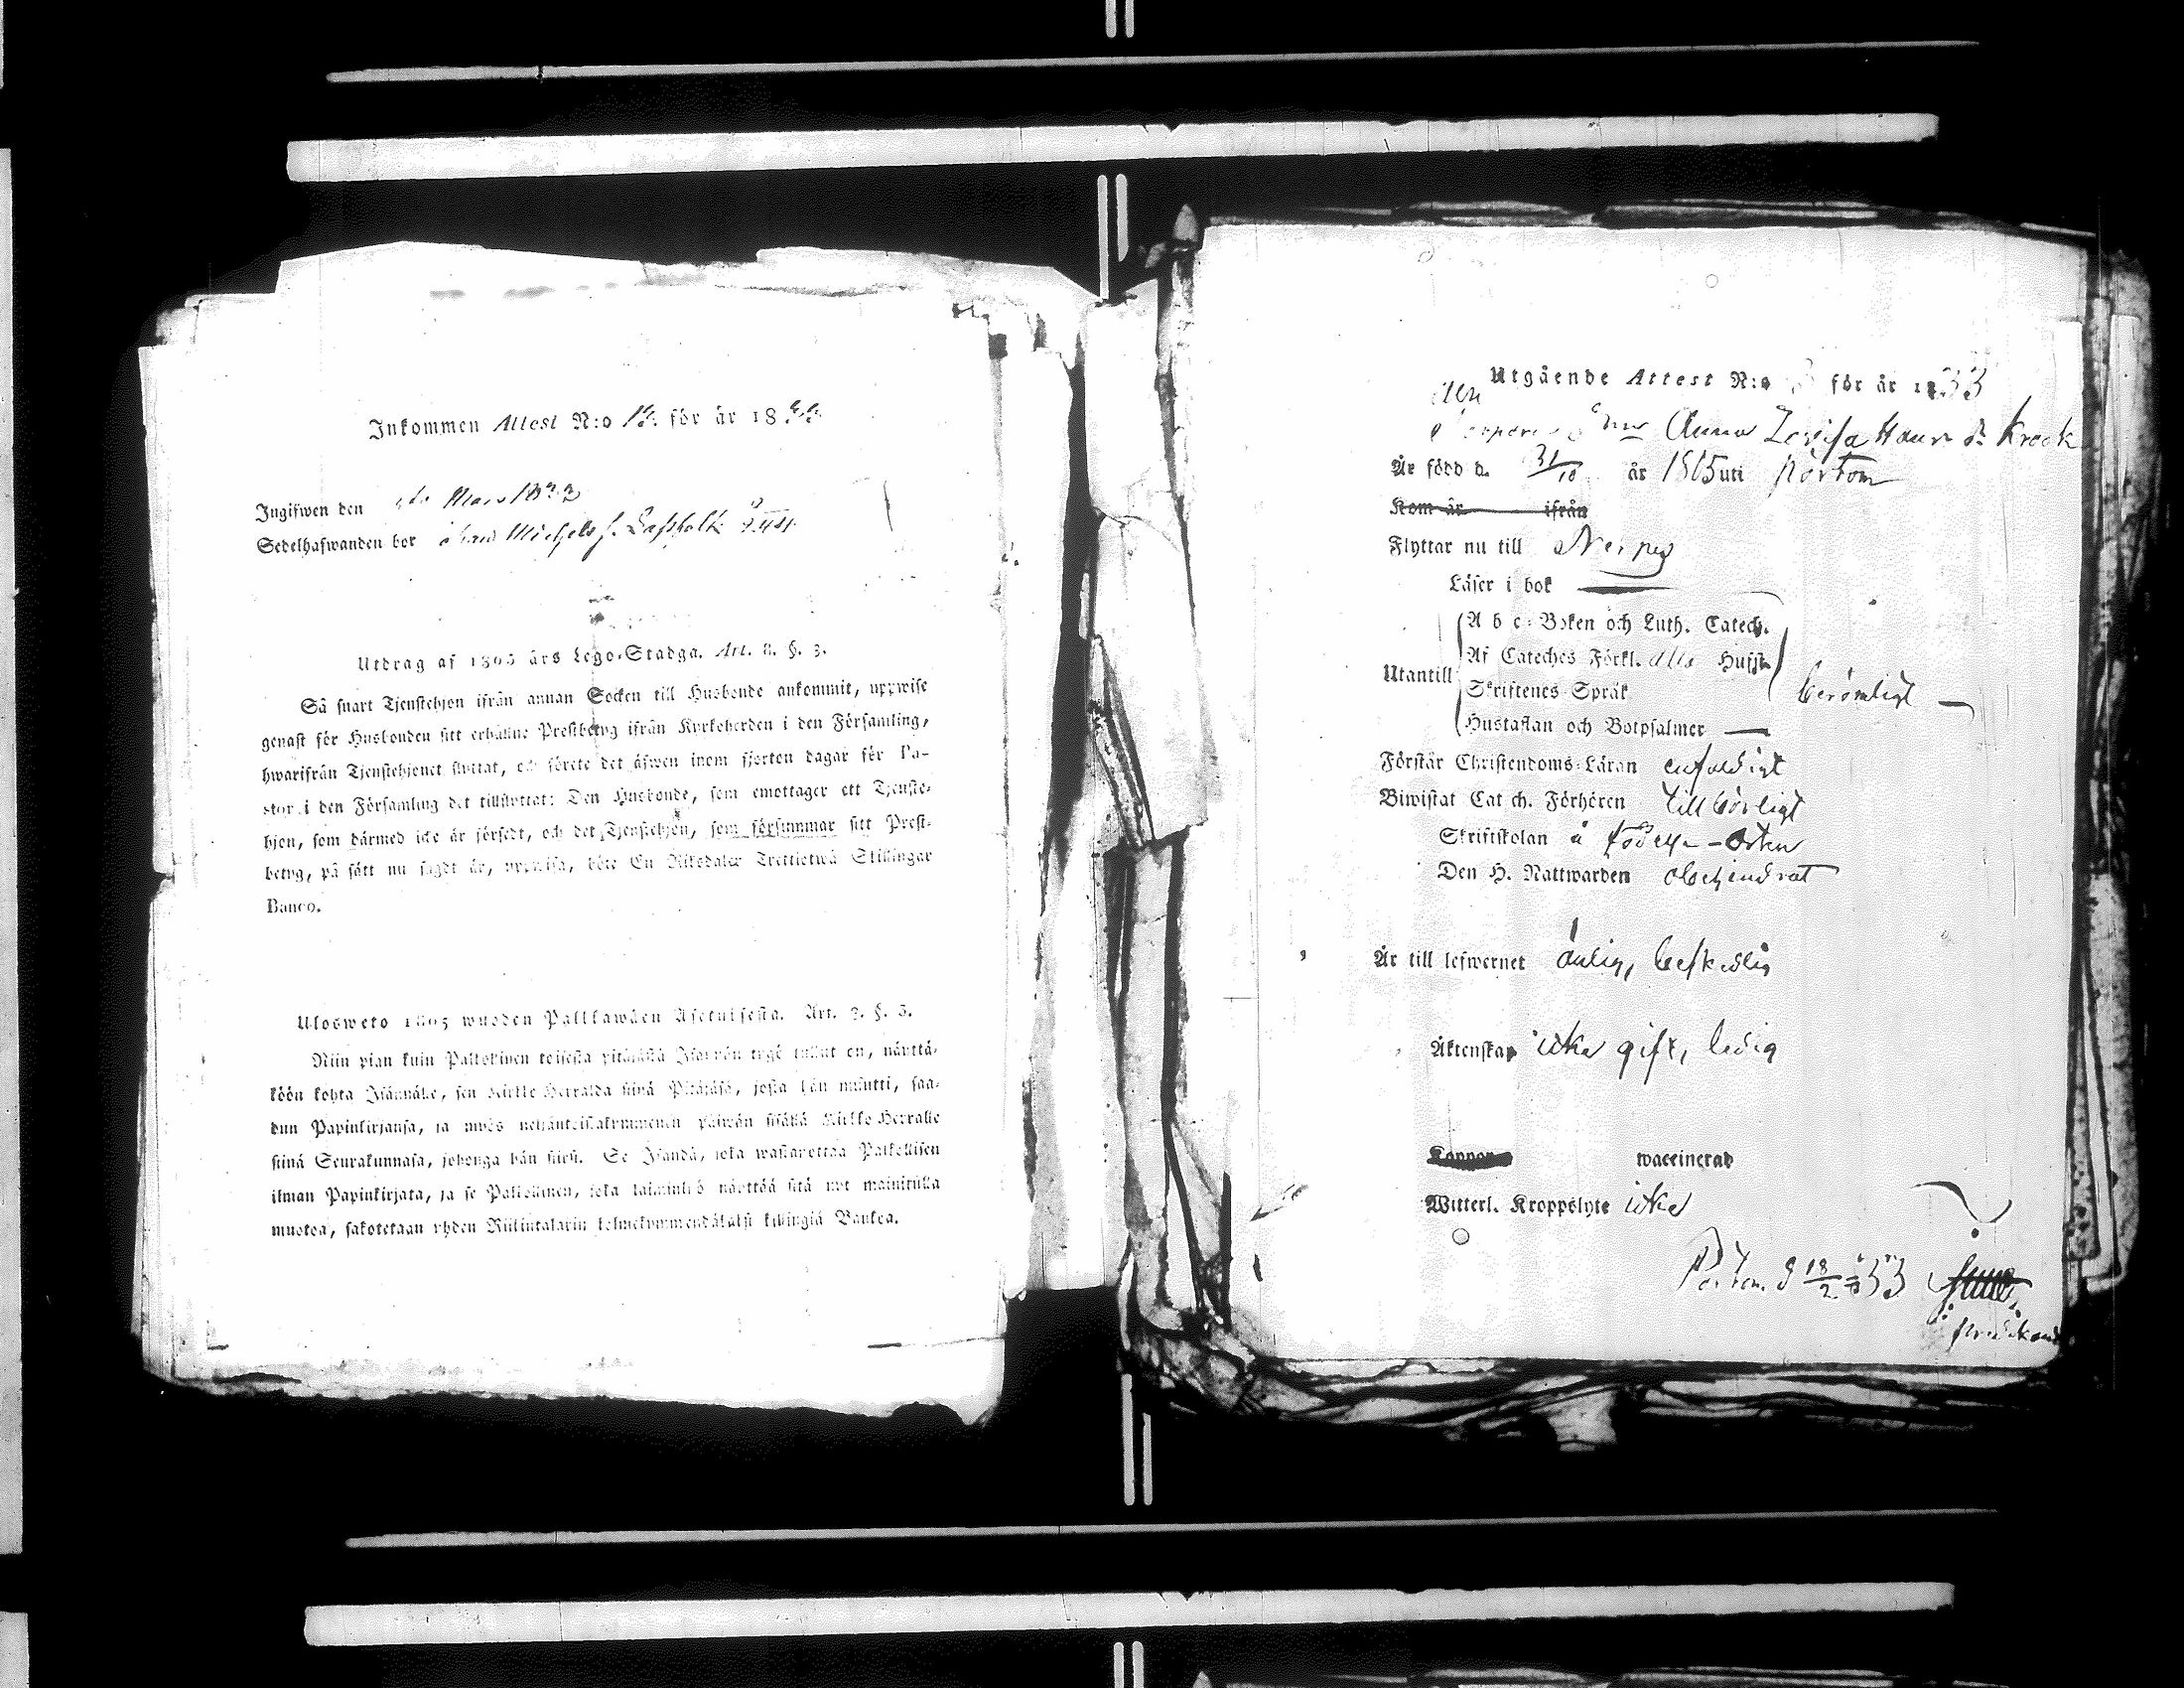 Inkommen Attest N:o för år 18
Ingifwen den Mars 1833
Sedelhafwanden bor Michels
Utdrag af 1805 års Lego-Stadga. Art. 8. §. 3.
Så snart Tjenstehjon ifrån annan Socken till Husbonde ankommit, uppwise
genast för Husbonden sitt erhållne Prestbetyg ifrån Kyrkoherden i den Församling,
hwarifrån Tjenstehjonet flyttat, och förete det äfwen inom fjorton dagar för Pa-
stor i den Församling det tillflyttat: Den Husbonde, som emottager ett Tjenste-
hjon, som därmed icke är försedt, och det Tjenstehjon, som försummar sitt Prest-
betyg, på sätt nu sagdt är, uppwisa, böte En Riksdaler Trettiotwå Skillingar
Banco.
Ulosweto 1805 wuoden Palkkawäen Asetuksesta. Art. 8. §. 3.
Niin pian kuin Palkollinen toisesta pitäjästä Isännän tygö tullut on, näyttä-
köön kohta Isännälle, sen Kirkko Herralda siinä Pitäjäsä, josta hän muutti, saa-
dun Papinkirjansa, ja myös neljäntoistakymmenen päiwän sisällä Kirkko Herralle
siinä Seurakunnasa, johonga hän siirsi. Se Isändä, joka wastanottaa Palkollisen
ilman Papinkirjata, ja se Palkollinen, joka laiminlyö näyttää sitä nyt mainitulla
muotoa, sakotetaan yhden Riikintalarin kolmekymmendäkaksi killingiä Bankoa.
Utgående Attest N:o för år 1833
Anna Lovisa Hans dr Krook
Är född d. 31/10 år 1815 uti Pörtom
Kom år ifrån
Flyttar nu till Nerpes
Läser i bok
A b c-Boken och Luth. Catech.
Af Cateches Förkl. alla Hufst.
Utantill
Skriftenes Språk
berömligt
Hustaflan och Botpsalmer
Förstår Christendoms-Läran enfaldigt
Biwistat Catech. Förhören tillbörligt
Skriftskolan å födelse-Orten
Den H. Nattwarden obehindrat
Är till lefwernet ärlig, beskedlig
Äktenskap icke gift, ledig
Koppor waccinerad
Witterl. Kroppslyte icke
Pörtom d 18/2 1833